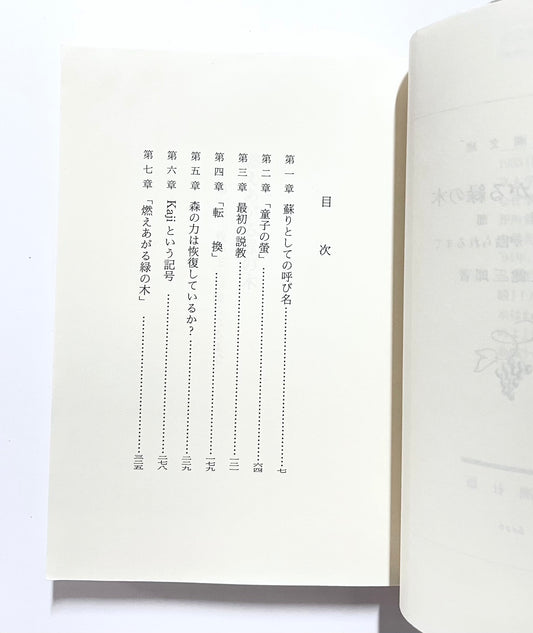 目次
第一章 蘇りとしての呼び名……七
第二章 「童子の螢」……六四
第三章 最初の説教……一二一
第四章 「転換」……一七九
第五章 森の力は恢復しているか?……二三九
第六章 Kajiという記号……二七八
第七章 「燃えあがる緑の木」……三二五